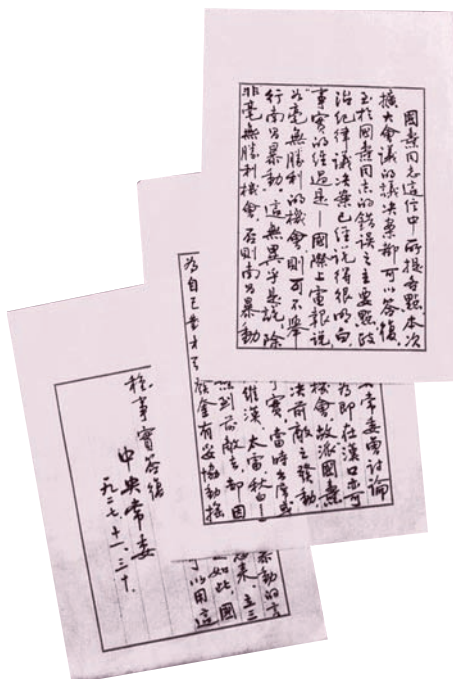 國燾同志這信中所提各點,本次
擴大會議的議決案都可以答復。
至於國燾同志的錯誤之主要點政
治紀律議決案已經説得很明白。
事實的經過是—國際上電報説
如毫無勝利的機會,則可不舉
行南昌暴動,這無異乎是説,除
非毫無勝利機會,否則南昌暴動
常委會討論
為即在漢口亦可
機會,故派國燾
決前敵之發動,
實,當時出席或
維漢、太雷、秋白—
到前敵去,却因
為自己
有妥協動搖
暴動的言
來,立三
如此,國
以用這
種事實答復
中央常委
一九二七、十一、三十.